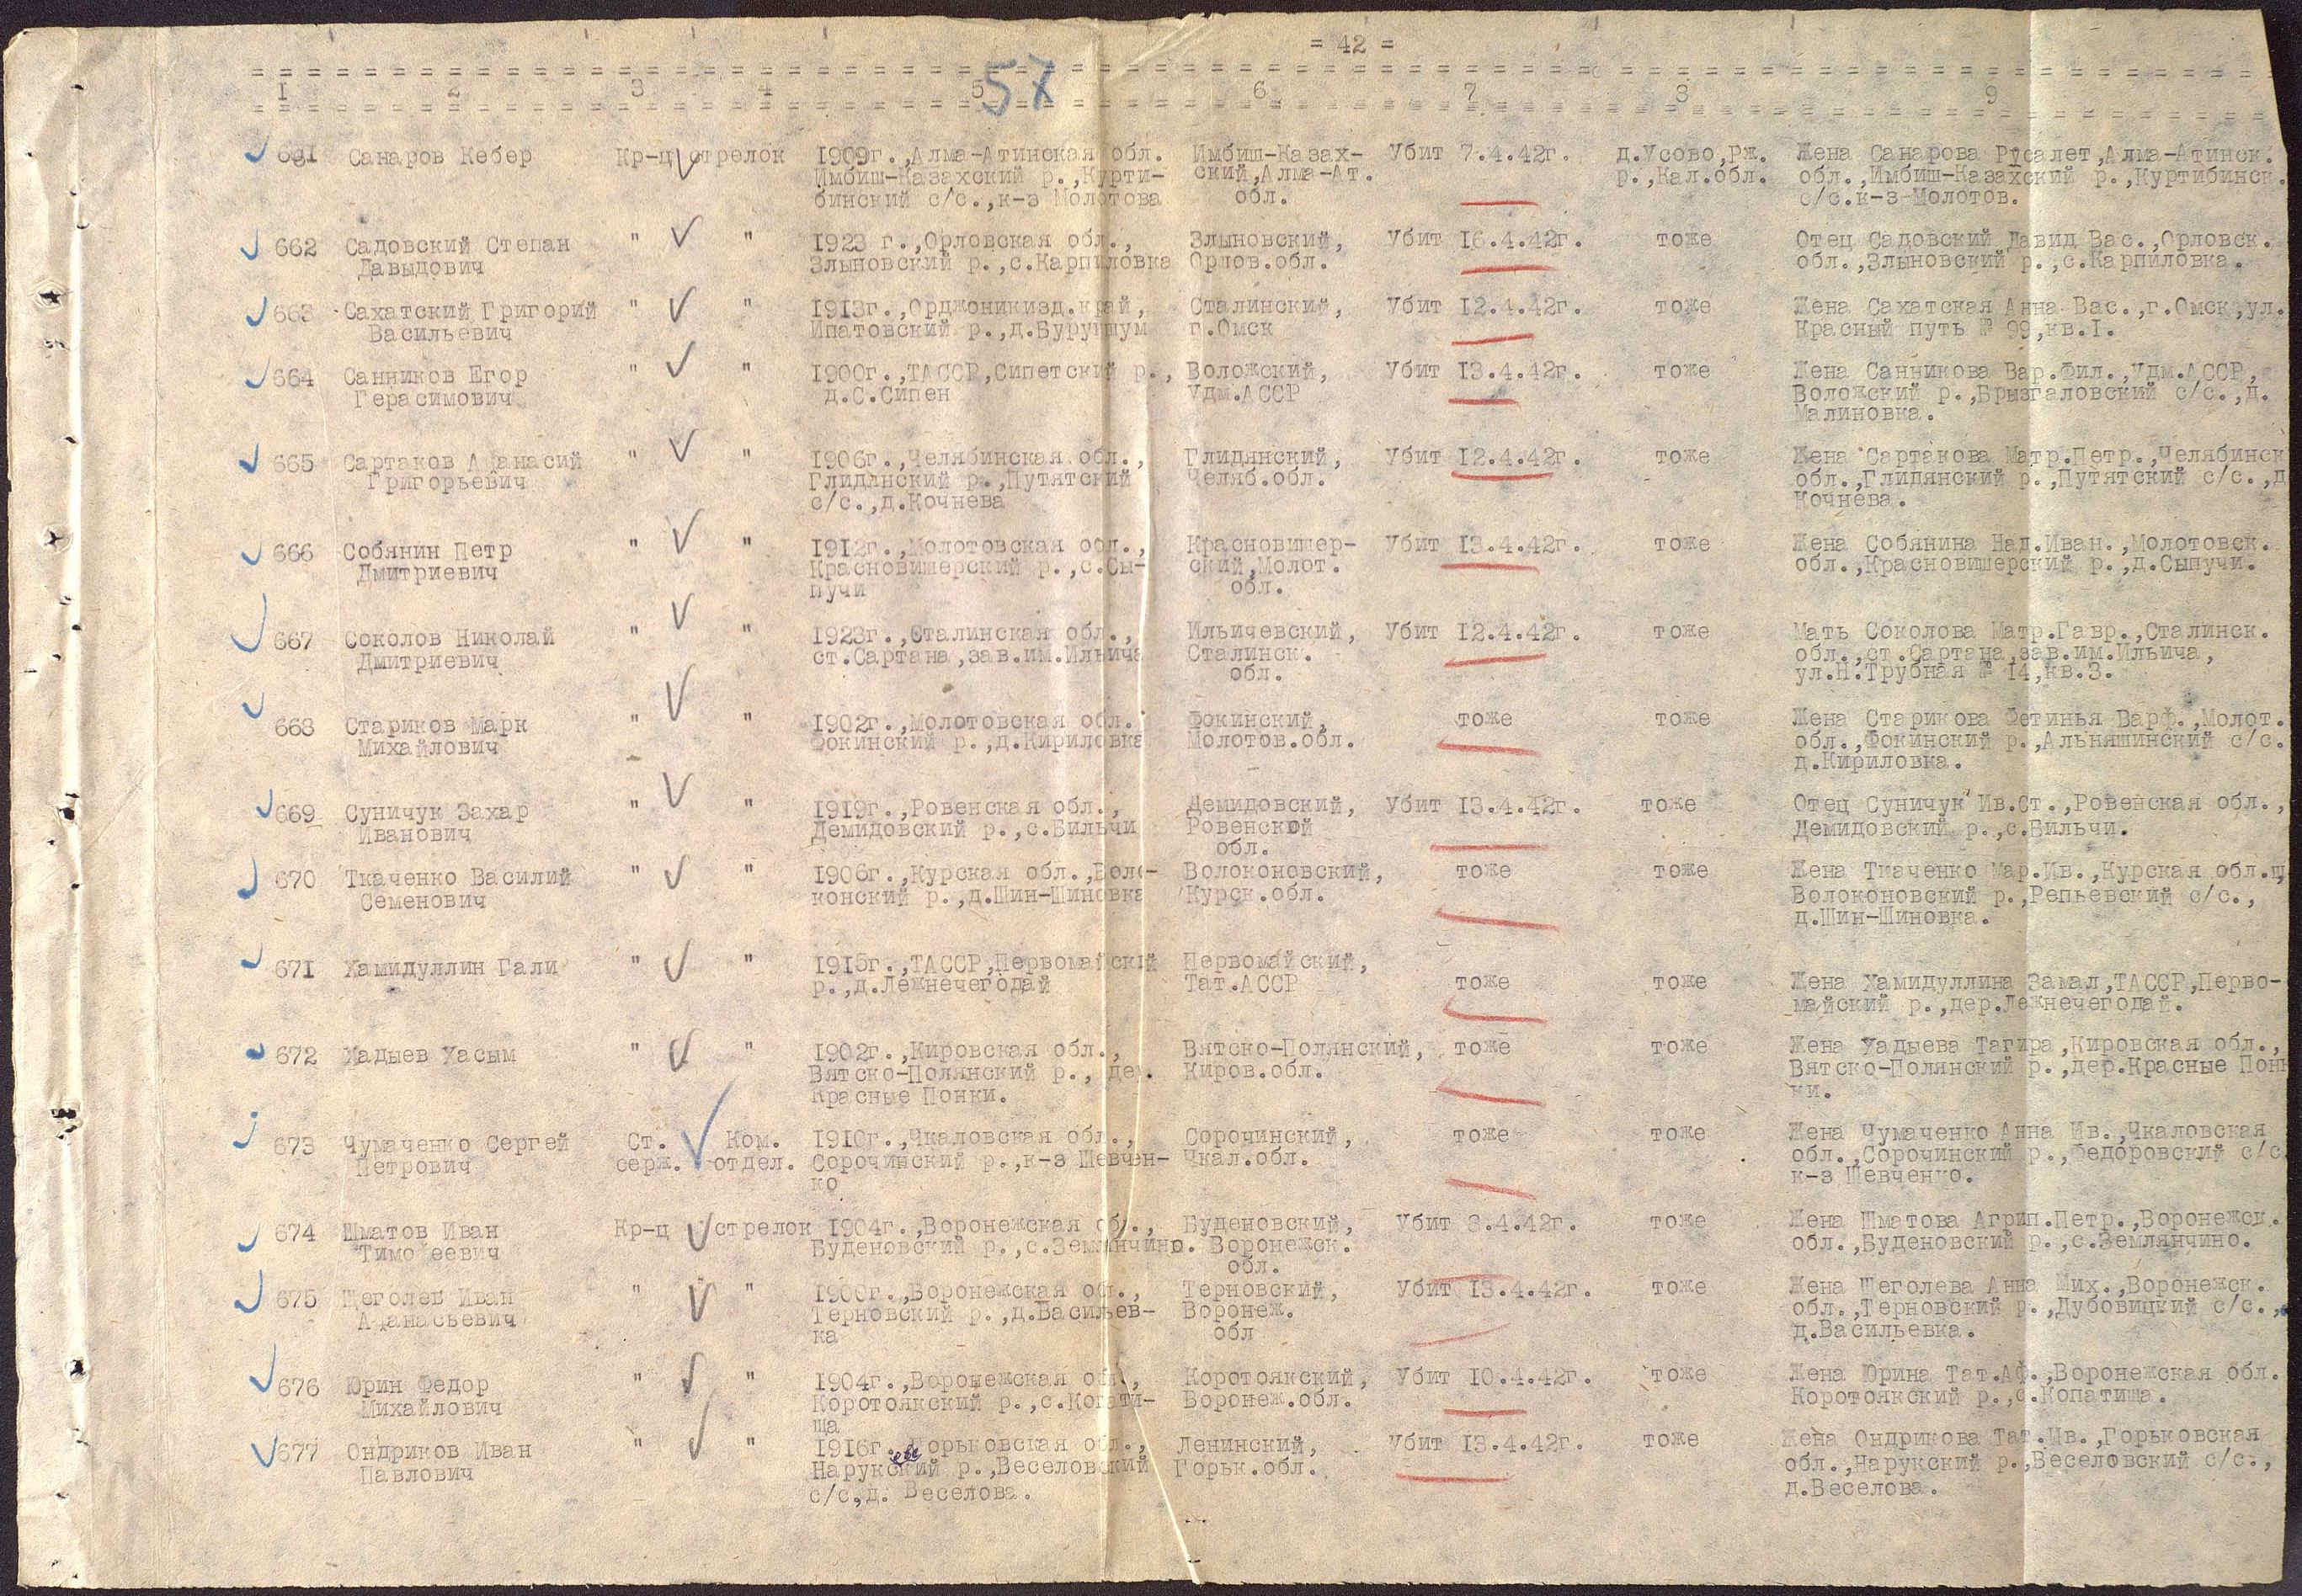 = 42 =
57
I 2 3 4 5 6 7 8 9
661 Санаров Кебер Кр-ц стрелок 1909г.,Алма-Атинская обл. Имбиш-Казах- Убит 7.4.42г. д.Усово,Рж. Жена Санарова Русалет,Алма-Атинск.
Имбиш-Казахский р.,Курти- ский,Алма-Ат. р.,Кал.обл. обл.,Имбиш-Казахский р.,Куртибинск.
бинский с/с.,к-з Молотова обл. с/с.к-з-Молотов.
662 Садовский Степан " " 1923 г.,Орловская обл., Злыновский, Убит 16.4.42г. тоже Отец Садовский Давид Вас.,Орловск.
Давыдович Злыновский р.,с.Карпиловка Орлов.обл. обл.,Злыновский р.,с.Карпиловка.
663 Сахатский Григорий " " 1913г.,Орджоникизд.край, Сталинский, Убит 12.4.42г. тоже Жена Сахатская Анна Вас.,г.Омск,ул.
Васильевич Ипатовский р.,д.Бурунщум г.Омск Красный путь № 99,кв.I.
664 Санников Егор " " 1900г.,ТАССР,Сипетский р., Воложский, Убит 13.4.42г. тоже Жена Санникова Вар.Фил.,Удм.АССР,
Герасимович д.С.Сипен Удм.АССР Воложский р.,Брызгаловский с/с.,д.
Малиновка.
665 Сартаков Афанасий " " 1906г.,Челябинская обл., Глидянский, Убит 12.4.42г. тоже Жена Сартакова Матр.Петр.,Челябинск
Григорьевич Глидянский р.,Путятский Челяб.обл. обл.,Глидянский р.,Путятский с/с.,д
с/с.,д.Кочнева Кочнева.
666 Собянин Петр " " 1912г.,Молотовская обл., Красновишер- Убит 13.4.42г. тоже Жена Собянина Над.Иван.,Молотовск.
Дмитриевич Красновишерский р.,с.Сы- ский,Молот. обл.,Красновишерский р.,д.Сыпучи.
пучи обл.
667 Соколов Николай " " 1923г.,Сталинская обл., Ильичевский, Убит 12.4.42г. тоже Мать Соколова Матр.Гавр.,Сталинск.
Дмитриевич ст.Сартана,зав.им.Ильича Сталинск. обл.,ст.Сартана,зав.им.Ильича,
обл. ул.Н.Трубная № 14,кв.3.
668 Стариков Марк " " 1902г.,Молотовская обл. Фокинский, тоже тоже Жена Старикова Фетинья Варф.,Молот.
Михайлович Фокинский р.,д.Кириловка Молотов.обл. обл.,Фокинский р.,Альняшинский с/с.
д.Кириловка.
669 Суничук Захар " " 1919г.,Ровенская обл., Демидовский, Убит 13.4.42г. тоже Отец Суничук Ив.Ст.,Ровенская обл.,
Иванович Демидовский р.,с.Бильчи Ровенской Демидовский р.,с.Бильчи.
обл.
670 Ткаченко Василий " " 1906г.,Курская обл.,Воло- Волоконовский, тоже тоже Жена Ткаченко Мар.Ив.,Курская обл.щ
Семенович конский р.,д.Шин-Шиновка Курск.обл. Волоконовский р.,Репьевский с/с.,
д.Шин-Шиновка.
671 Хамидуллин Гали " " 1915г.,ТАССР,Первомайский Первомайский,
р.,д.Лежнечегодай Тат.АССР тоже тоже Жена Хамидуллина Замал,ТАССР,Перво-
майский р.,дер.Лежнечегодай.
672 Хадыев Хасым " " 1902г.,Кировская обл., Вятско-Полянский, тоже тоже Жена Хадыева Тагира,Кировская обл.,
Вятско-Полянский р., дер. Киров.обл. Вятско-Полянский р.,дер.Красные Пон
Красные Понки. ки.
673 Чумаченко Сергей Ст. Ком. 1910г.,Чкаловская обл., Сорочинский, тоже тоже Жена Чумаченко Анна Ив.,Чкаловская
Петрович серж. отдел. Сорочинский р.,к-з Шевчен- Чкал.обл. обл.,Сорочинский р.,Федоровский с/с
ко к-з Шевченко.
674 Шматов Иван Кр-ц стрелок 1904г.,Воронежская об., Буденовский, Убит 8.4.42г. тоже Жена Шматова Агрип.Петр.,Воронежск.
Тимофеевич Буденовский р.,с.Землянчино. Воронежск. обл.,Буденовский р.,с.Землянчино.
обл.
675 Щеголев Иван " " 1900г.,Воронежская обл., Терновский, Убит 13.4.42г. тоже Жена Щеголева Анна Мих.,Воронежск.
Афанасьевич Терновский р.,д.Васильев- Воронеж. обл.,Терновский р.,Дубовицкий с/с.,
ка обл д.Васильевка.
676 Юрин Федор " " 1904г.,Воронежская обл., Коротоякский, Убит 10.4.42г. тоже Жена Юрина Тат.Аф.,Воронежская обл.
Михайлович Коротоякский р.,с.Копати- Воронеж.обл. Коротоякский р.,с.Копатища.
ща
677 Ондриков Иван " " 1916г.,Горьковская обл., Ленинский, Убит 13.4.42г. тоже Жена Ондрикова Тат.Ив.,Горьковская
Павлович Нарукский р.,Веселовский Горьк.обл. обл.,Нарукский р.,Веселовский с/с.,
с/с,д. Веселова. д.Веселова.